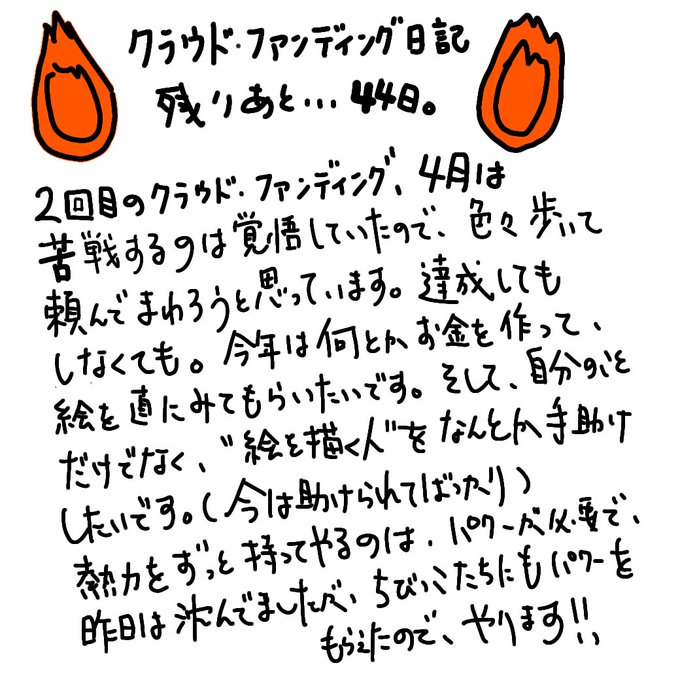 クラウド・ファンディング日記
残りあと…44日。
2回目のクラウド・ファンディング、4月は
苦戦するのは覚悟していたので、色々歩いて
頼んでまわろうと思っています。達成しても
しなくても。今年は何とかお金を作って、
絵を直にみてもらいたいです。そして、自分のこと
だけでなく、"絵を描く人"をなんとか手助け
したいです。(今は助けられてばっかり)
熱力をずっと持ってやるのは、パワーが必要で、
昨日は沈んでましたが、ちびっこたちにもパワーを
もらえたので、やります!!